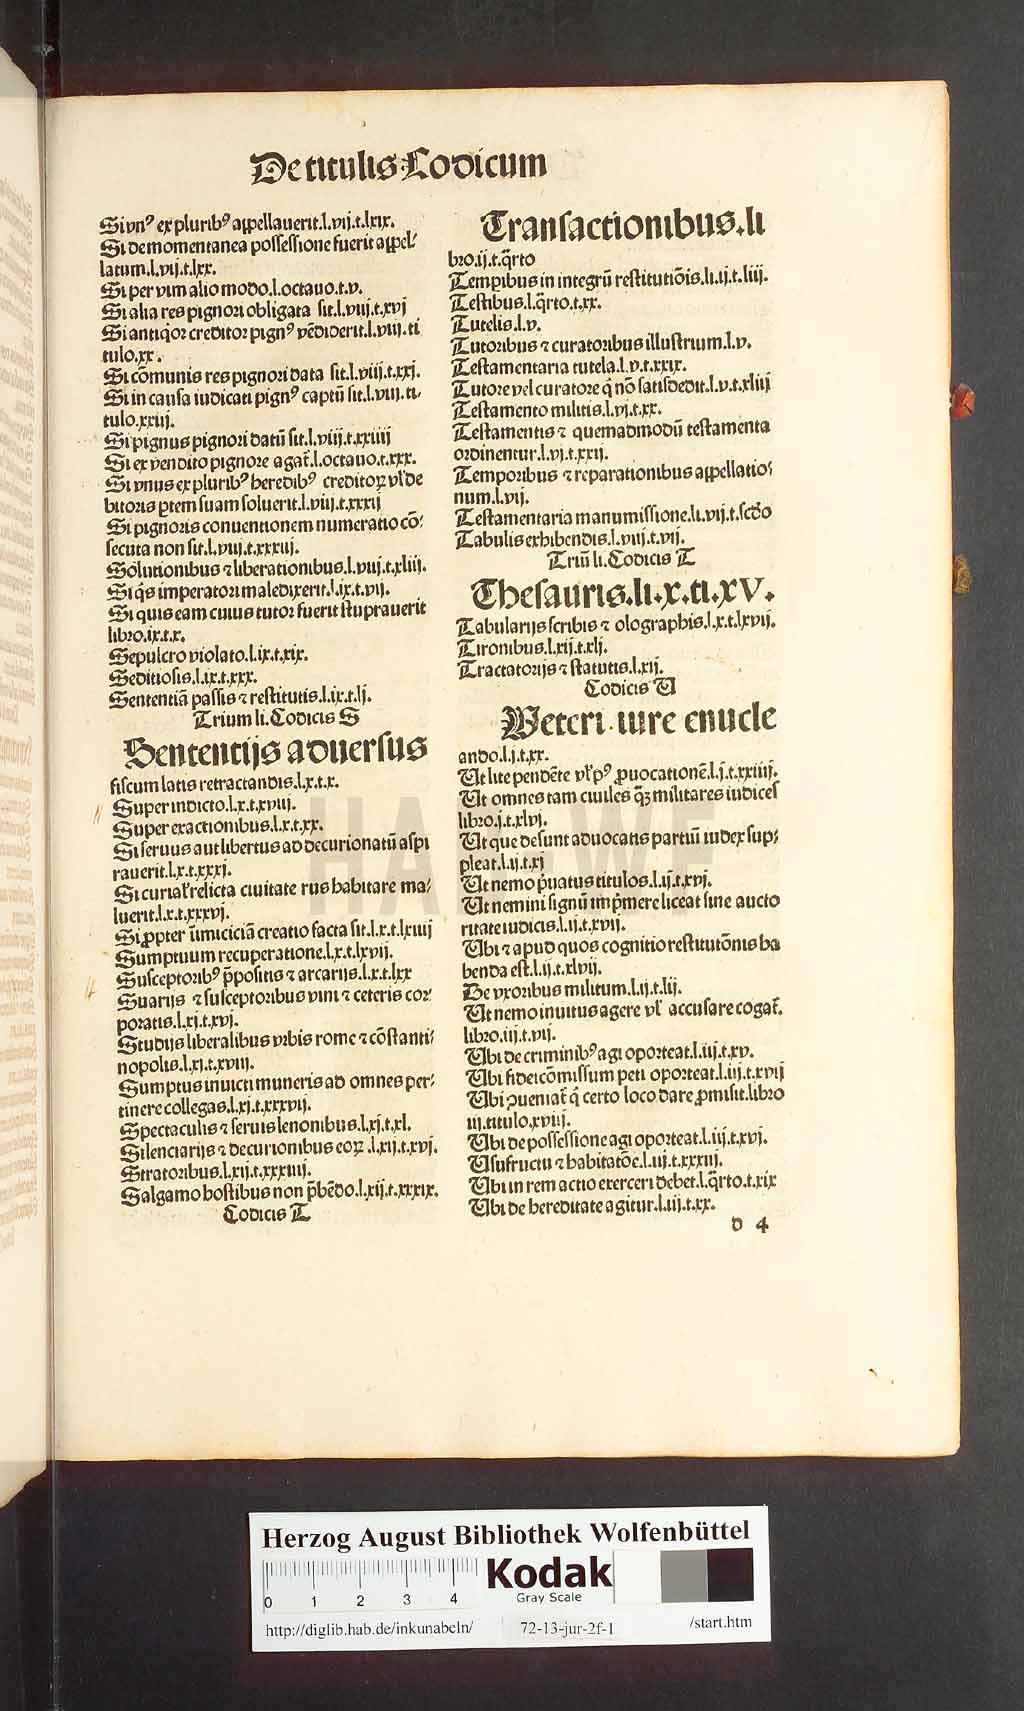 De titulis Codicum
Si vnꝰ ex pluribꝰ appellauerit.l.vij.t.lxix.
Si de momentanea possessione fuerit appel⸗
latum.l.vij.t.lxx.
Si per vim alio modo.l.octauo.t.v.
Si alia res pignori obligata sit.l.viij.t.xvj
Si antiq̇or creditor pignꝰ vēdiderit.l.viij.ti
tulo.xx.
Si cōmunis res pignori data sit.l.viij.t.xxj.
Si in causa iudicati pignꝰ captū sit.l.viij.ti⸗
tulo.xxiij.
Si pignus pignori datū sit.l.viij.t.xxiiij
Si ex vendito pignore agat̃.l.octauo.t.xxx.
Si vnus ex pluribꝰ heredibꝰ creditoꝝ vl̕ de
bitoris ꝑtem suam soluerit.l.viij.t.xxxij
Si pignoris conuentionem numeratio cō⸗
secuta non sit.l.viij.t.xxxiij.
Solutionibus ⁊ liberationibus.l.viij.t.xliij.
Si q̇s imperatori maledixerit.l.ix.t.vij.
Si quis eam cuius tutor fuerit stuprauerit
libro.ix.t.x.
Sepulcro violato.l.ix.t.xix.
Seditiosis.l.ix.t.xxx.
Sententiā passis ⁊ restitutis.l.ix.t.lj.
Trium li.Codicis S
Sententijs aduersus
fiscum latis retractandis.l.x.t.x.
Super indicto.l.x.t.xviij.
Super exactionibus.l.x.t.xx.
Si seruus aut libertus ad decurionatū aspi
rauerit.l.x.t.xxxj.
Si curial̕ relicta ciuitate rus habitare ma⸗
luerit.l.x.t.xxxvj.
Si ꝓpter inimiciciā creatio facta sit.l.x.t.lxiiij
Sumptuum recuperatione.l.x.t.lxvij.
Susceptoribꝰ p̄positis ⁊ arcarijs.l.x.t.lxx
Suarijs ⁊ susceptoribus vini ⁊ ceteris cor⸗
poratis.l.xj.t.xvj.
Studijs liberalibus vrbis rome ⁊ cōstanti⸗
nopolis.l.xj.t.xviij.
Sumptus iniuncti muneris ad omnes per⸗
tinere collegas.l.xj.t.xxxvij.
Spectaculis ⁊ seruis lenonibus.l.xj.t.xl.
Silenciarijs ⁊ decurionibus eoꝝ.l.xij.t.xvj.
Stratoribus.l.xij.t.xxxiiij.
Salgamo hostibus non p̄bēdo.l.xij.t.xxxix.
Codicis T
Transactionibus.li
bro.ij.t.q̄rto
Temporibus in integrū restitutiōis.li.ij.t.liij.
Testibus.l.q̄rto.t.xx.
Tutelis.l.v.
Tutoribus ⁊ curatoribus illustrium.l.v.
Testamentaria tutela.l.v.t.xxix.
Tutore vel curatore q̇ nō satisdedit.l.v.t.xliij
Testamento militis.l.vj.t.xx.
Testamentis ⁊ quemadmodū testamenta
ordinentur.l.vj.t.xxij.
Temporibus ⁊ reparationibus appellatio⸗
num.l.vij.
Testamentaria manumissione.li.vij.t.scd̄o
Tabulis exhibendis.l.viij.t.vij.
Triū li.Codicis T
Thesauris.li.x.ti.xV.
Tabularijs scribis ⁊ olographis.l.x.t.lxvij.
Tironibus.l.xij.t.xlj.
Tractatorijs ⁊ statutis.l.xij.
Codicis U
Veteri iure enucle
ando.l.j.t.xx.
Ut lite pendēte vl̕ pꝰ ꝓuocationē.l.j.t.xxiiij.
Ut omnes tam ciuiles q̄ꝫ militares iudices
libro.j.t.xlvj.
Ut que desunt aduocatis partiū iudex sup⸗
pleat.l.ij.t.xj
Ut nemo p̄uatus titulos.l.ij.t.xvj.
Ut nemini signū imp̄mere liceat sine aucto
ritate iudicis.l.ij.t.xvij.
Ubi ⁊ apud quos cognitio restitutōnis ha
benda est.l.ij.t.xlvij.
De vxoribus militum.l.ij.t.lij.
Ut nemo inuitus agere vl̕ accusare cogat̃.
libro.iij.t.vij.
Ubi de criminibꝰ agi oporteat.l.iij.t.xv.
Ubi fideicōmissum peti oporteat.l.iij.t.xvij
Ubi ꝯueniat̃ q̇ certo loco dare ꝓmisit.libro
iij.titulo.xviij.
Ubi de possessione agi oporteat.l.iij.t.xvj.
Usufructu ⁊ habitatōe.l.iij.t.xxxiij.
Ubi in rem actio exerceri debet.l.q̄rto.t.xix
Ubi de hereditate agitur.l.iij.t.xx.
d 4
HAB WF
Herzog August Bibliothek Wolfenbüttel
0 1 2 3 4
Kodak
Gray Scale
http://diglib.hab.de/inkunabeln/ 72-13-jur-2f-1 /start.htm